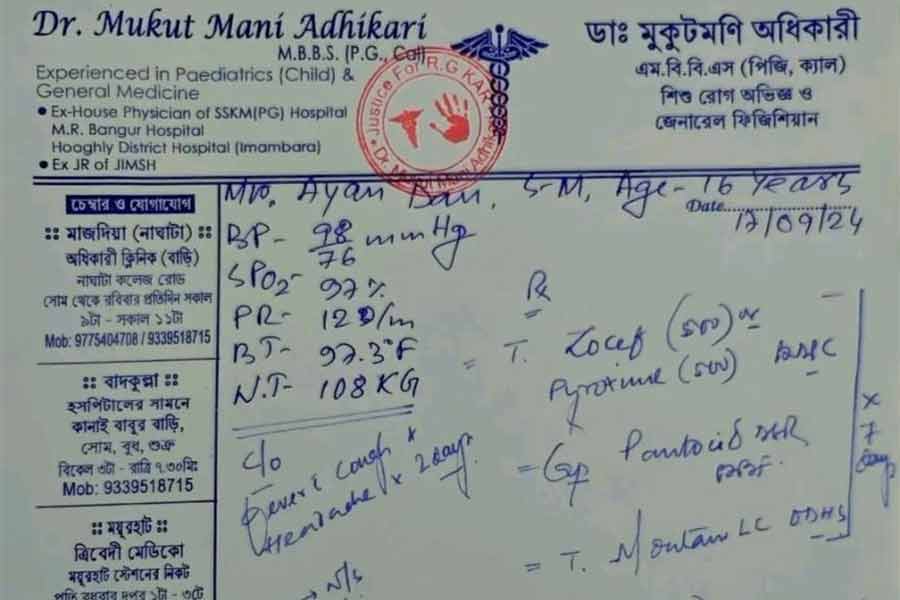 Dr. Mukut Mani Adhikari
M.B.B.S. (P.G., Cal)
Experienced in Paediatrics (Child) &
General Medicine
• Ex-House Physician of SSKM(PG) Hospital
M.R. Bangur Hospital
Hooghly District Hospital (Imambara)
• Ex JR of JIMSH
Justice For R.G KAR
Dr. Mukut Mani Adhikari
ডাঃ মুকুটমণি অধিকারী
এম.বি.বি.এস (পিজি, ক্যাল)
শিশু রোগ অভিজ্ঞ ও
জেনারেল ফিজিশিয়ান
Ayan S-M, Age- 16 Years
Date 17/09/24
চেম্বার ও যোগাযোগ
মাজদিয়া (নাঘাটা)
অধিকারী ক্লিনিক (বাড়ি)
নাঘাটা কলেজ রোড
সোম থেকে রবিবার প্রতিদিন সকাল
৯টা - সকাল ১১টা
Mob: 9775404708 / 9339518715
বাদকুল্লা
হসপিটালের সামনে
কানাই বাবুর বাড়ি,
সোম, বুধ, শুক্র
বিকেল ৩টা - রাত্রি ৭.৩০মিঃ
Mob: 9339518715
ময়ূরহাট
ত্রিবেদী মেডিকো
ময়ূরহাট স্টেশনের নিকট
প্রতি বুধবার দুপুর ১টা - ৩টে
BP- 98/76 mmHg
SPO2- 97%
PR- /m
BT- 97.3°F
WT- 108 KG
c/o
Fever c cough x
Headache x 2 days
N/S
Rx
= T. Zocef (500) or
(500)
= Cap Pantocid DSR
= T. Montair LC
x 7 days